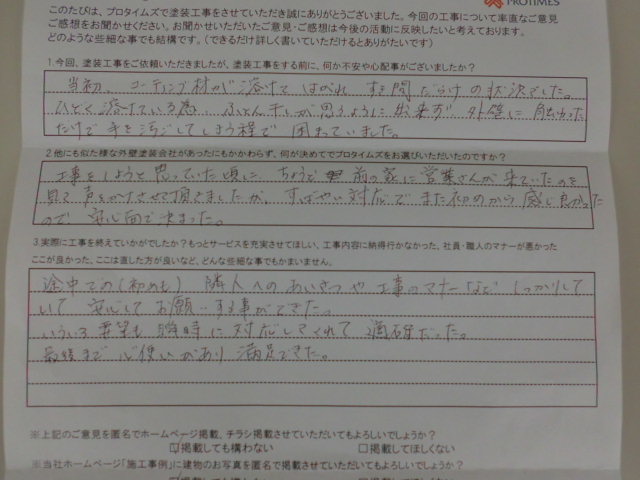 PROTIMES
このたびは、プロタイムズで塗装工事をさせていただき誠にありがとうございました。今回の工事について率直なご意見
ご感想をお聞かせください。お聞かせいただいたご意見・ご感想は今後の活動に反映したいと考えております。
どのような些細な事でも結構です。(できるだけ詳しく書いていただけるとありがたいです)
1.今回、塗装工事をご依頼いただきましたが、塗装工事をする前に、何か不安や心配事がございましたか?
当初、コーティング材が溶けて はがれ すき間だらけの状況でした。
ひどく溶けている為、ふとん干しが思うように出来ず 外壁に触わった
だけで手を汚ごしてしまう程で 困まっていました。
2.他にも似た様な外壁塗装会社があったにもかかわらず、何が決めてでプロタイムズをお選びいただいたのですか?
工事をしようと思っていた頃に、ちょうど 前の家に営業さんが来ていたのを
見て 声をかけさせて頂きましたが、すばやい対応で また初めから 感じ良かった
ので 安心面で決まった。
3.実際に工事を終えていかがでしたか?もっとサービスを充実させてほしい、工事内容に納得行かなかった、社員・職人のマナーが悪かった
ここが良かった、ここは直した方が良いなど、どんな些細な事でもかまいません。
途中での(初めも) 隣人へのあいさつや工事のマナーなど しっかりして
いて 安心して お願いする事ができた。
いろいろ要望も 瞬時に対応してくれて 適確だった。
最後まで 心使いがあり 満足できた。
※上記のご意見を匿名でホームページ掲載、チラシ掲載させていただいてもよろしいでしょうか?
掲載しても構わない □掲載してほしくない
※当社ホームページ「施工事例」に建物のお写真を匿名で掲載させていただいてもよろしいでしょうか?